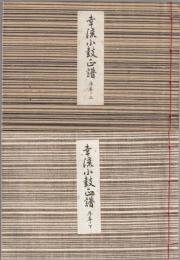 幸流小鼓正譜 序之上
幸流小鼓正譜 序之下